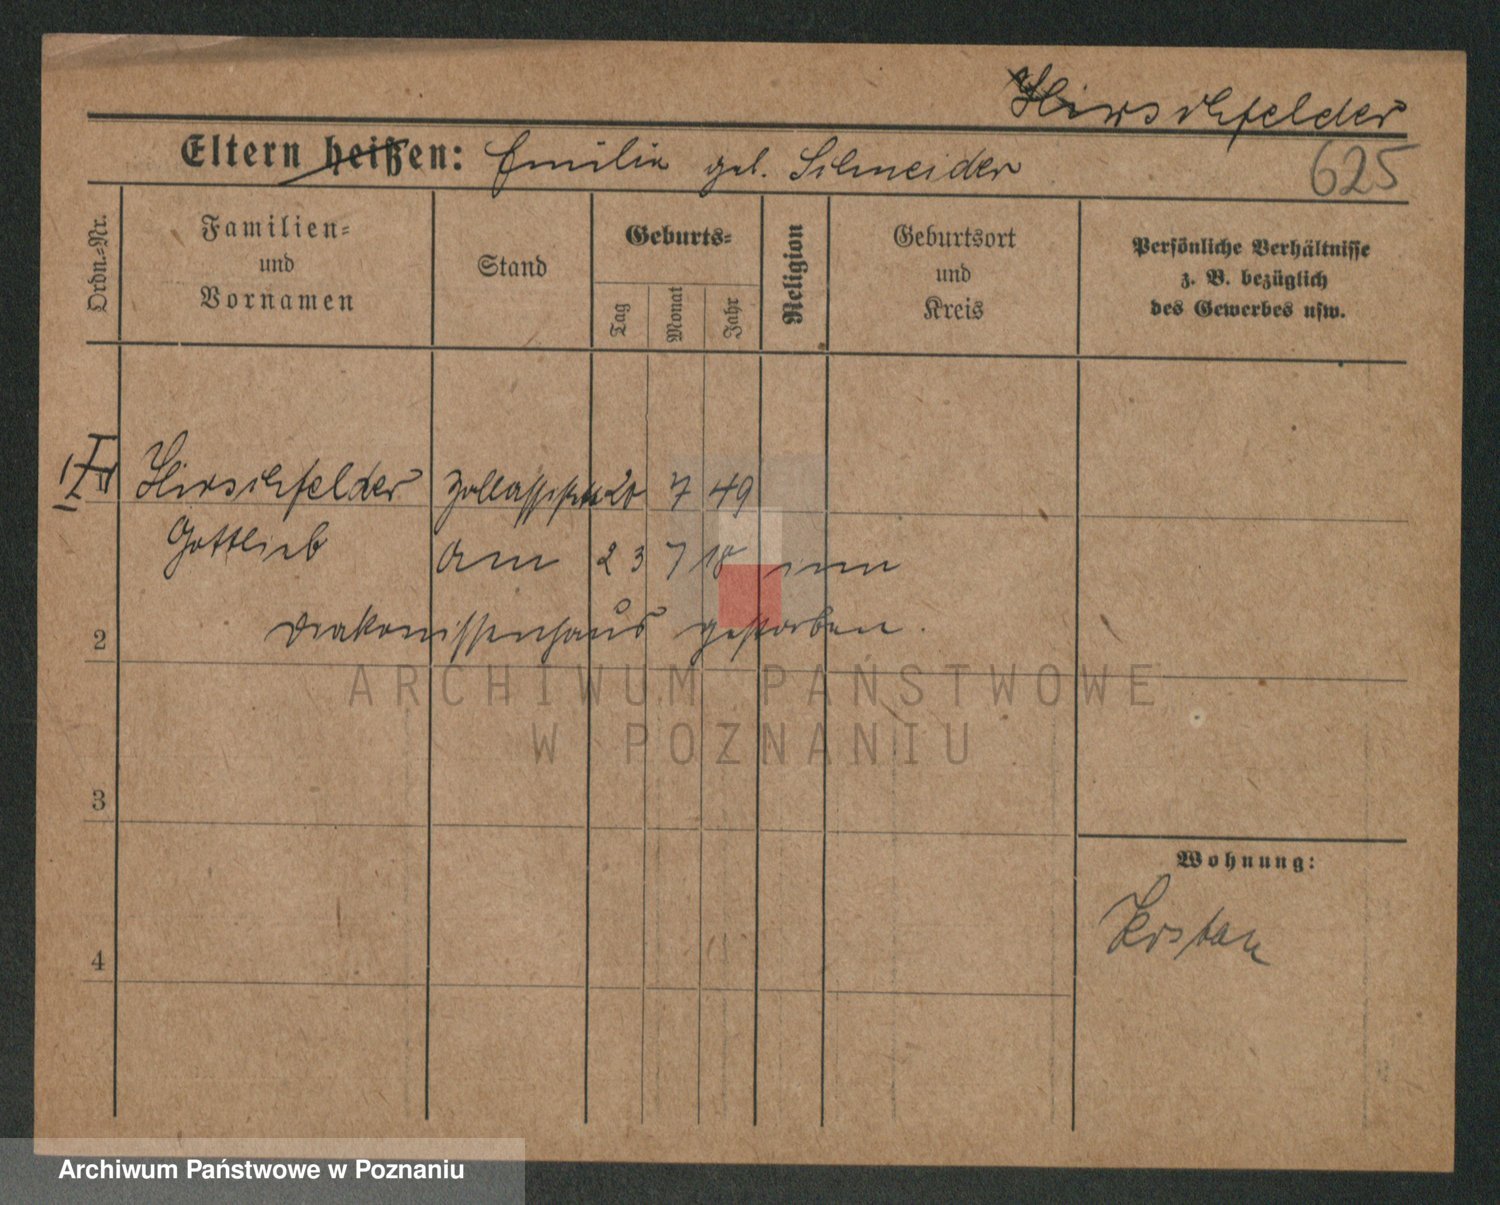 Hirschfelder
Eltern heißen: Emilie geb. Schneider
625
Ordn.-Nr.
Familien-
und
Vornamen
Stand
Geburts-
Tag
Monat
Jahr
Religion
Geburtsort
und
Kreis
Persönliche Verhältnisse
z. B. bezüglich
des Gewerbes usw.
Hirschfelder Zollassistent 20 7 49
Gottlieb am 23 7 18 im
2
Diakonissenhaus gestorben.
ARCHIWUM PAŃSTWOWE
W POZNANIU
3
Wohnung:
4
Archiwum Państwowe w Poznaniu